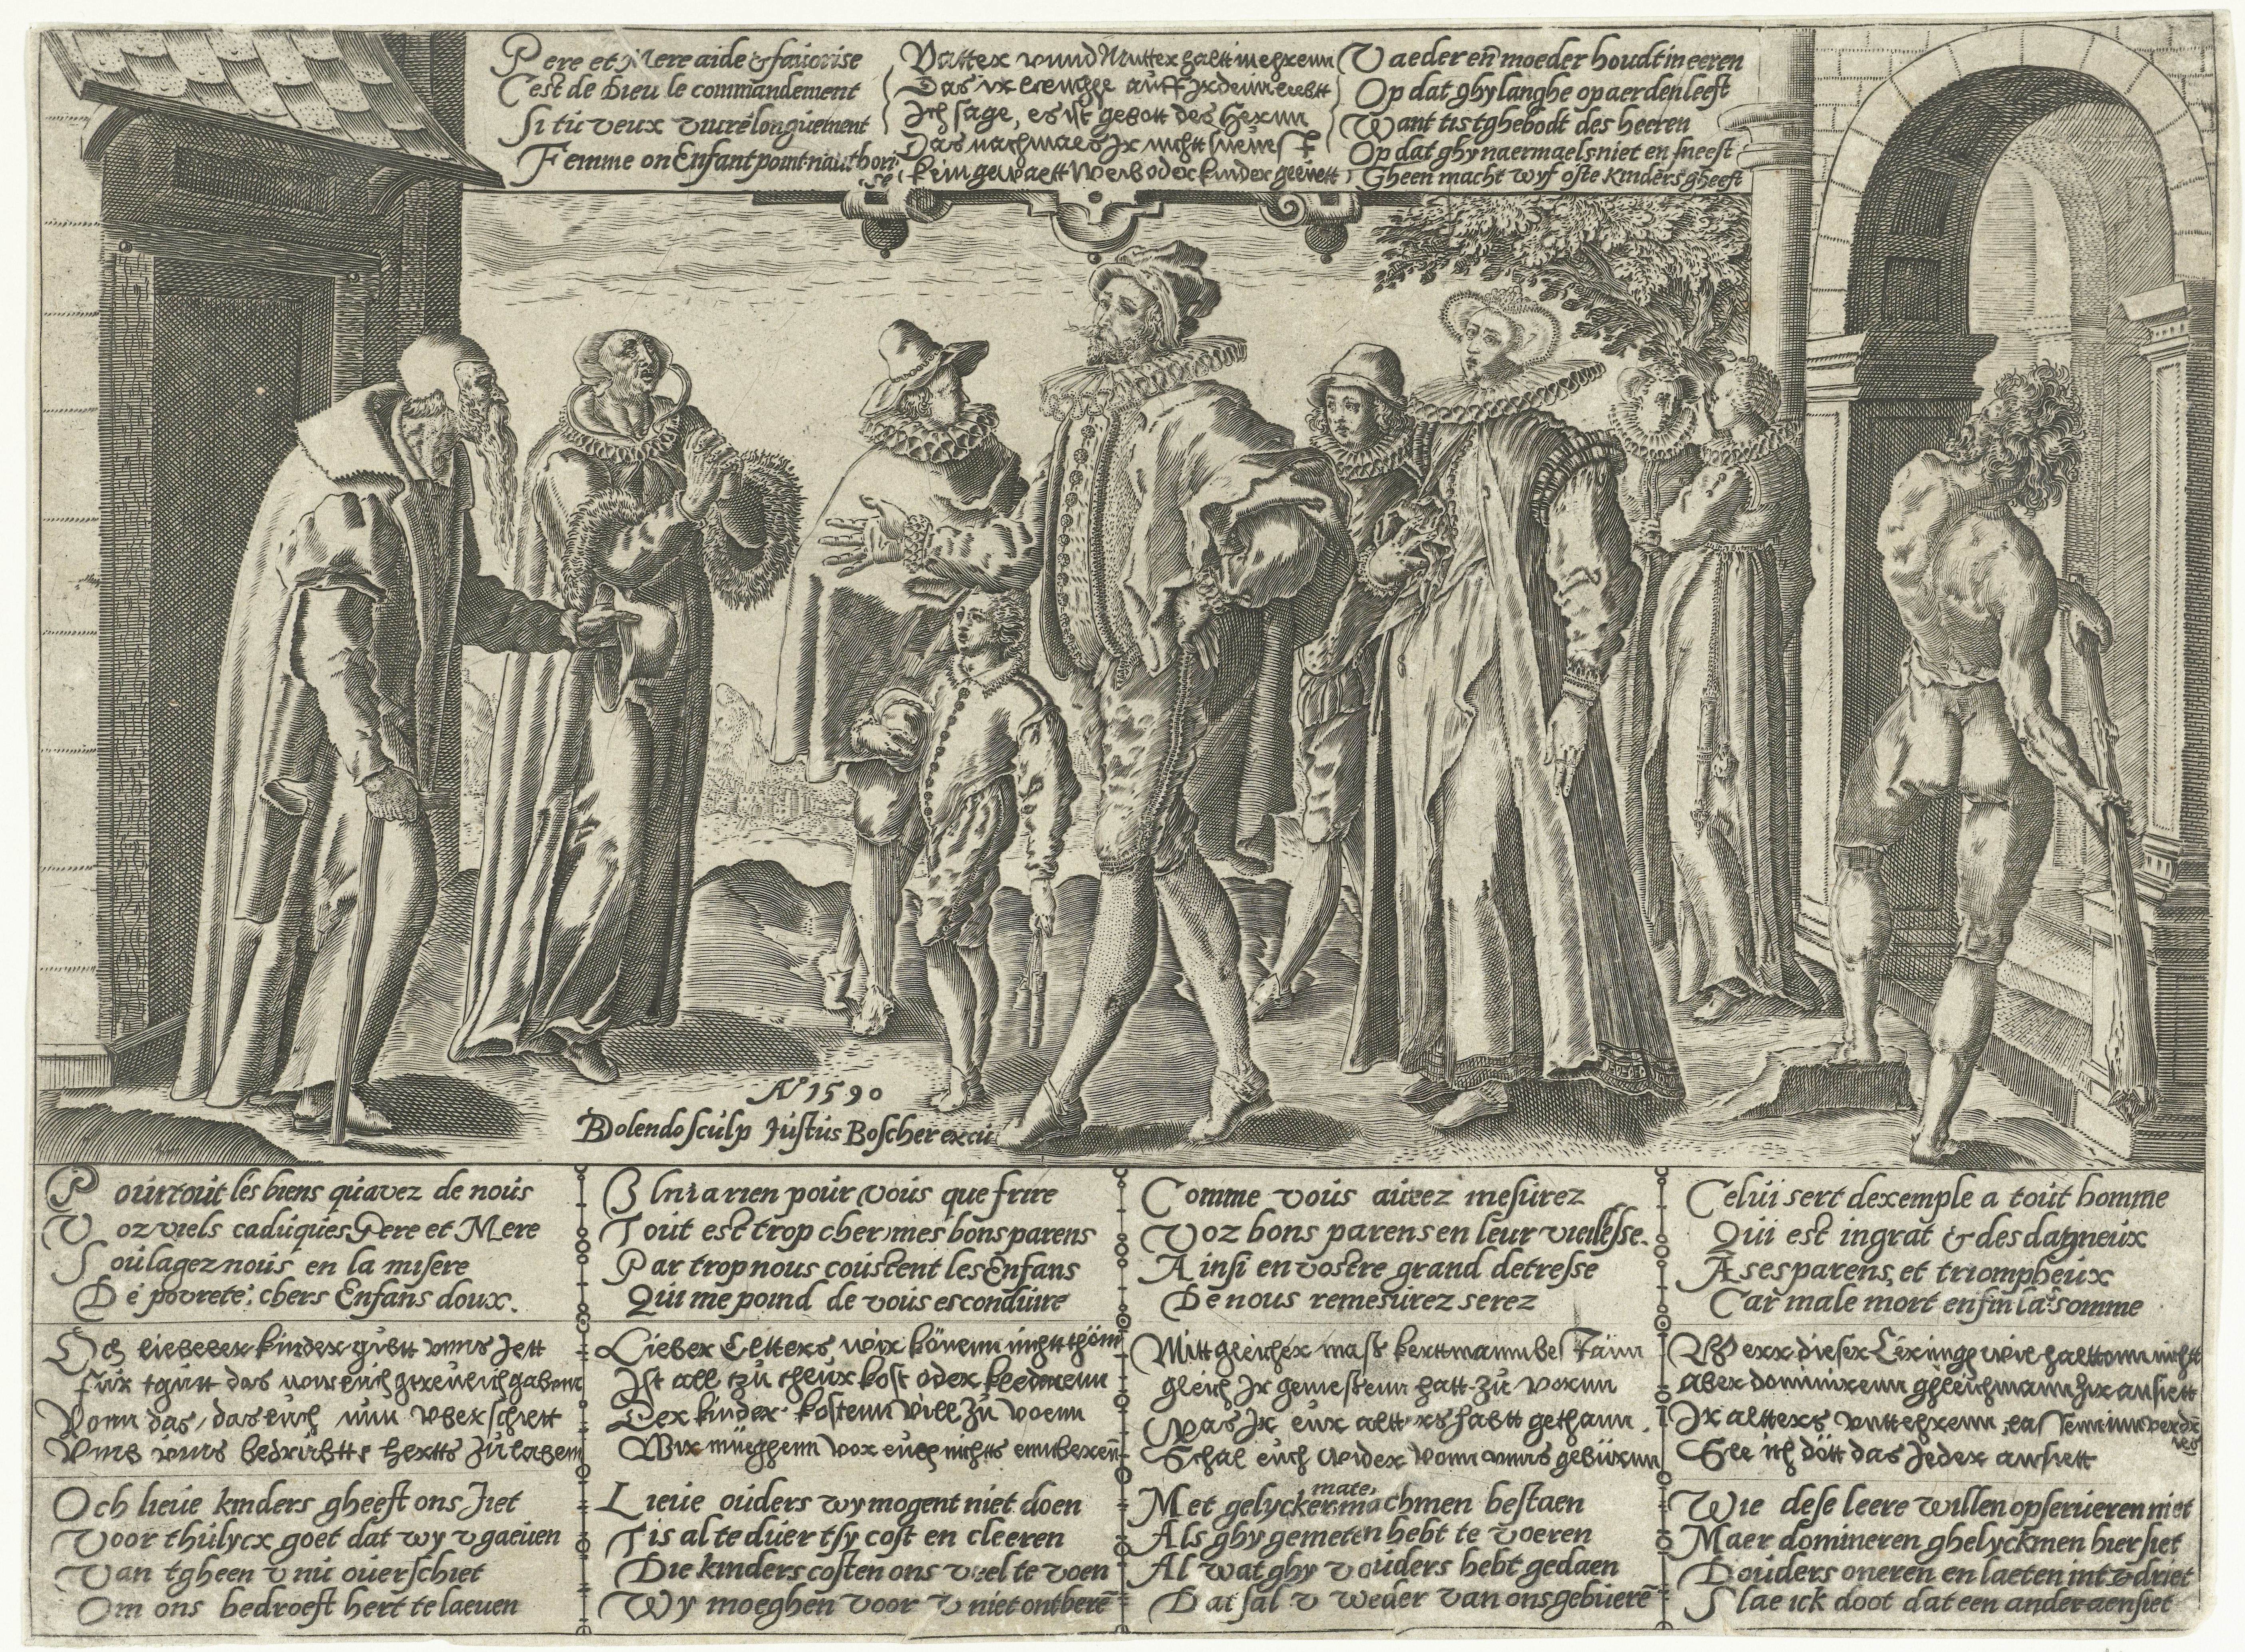 Pere et Mere aide & fauorise
C'est de Dieu le commandement
Si tu veux viure longuement
Femme on Enfant point n'authori
se
Vatter vnnd Mutter halt in ehrenn
Das ir lennghe auff Irdenn leebtt
Ich sage, es ist gebott des Herrnn
Das nachmaels Ir nichtt
kein gewaelt Weib oder kinder geevtt
Vaeder en̄ moeder houdt in eeren
Op dat ghy langhe op aerden leeft
Want tis tghebodt des heeren
Op dat ghy naermaels niet en sneeft
Gheen macht wyf ofte kinders gheeft
A° 1590
Dolendo sculp Justus Boscher excu
Pour tout les biens qu'avez de nous
Voz viels caduques Pere et Mere
Soulagez nous en la misere
De povreté, chers Enfans doux.
Il n'i a rien pour vous que frire
Tout est trop cher mes bons parens
Par trop nous coustent les Enfans
Qui me poind de vous esconduire
Comme vous aurez mesurez
Voz bons parens en leur vieillesse.
Ainsi en vostre grand detresse
De nous remesurez serez
Celui sert dexemple a tout homme
Qui est ingrat & desdaigneux
A ses parens, et triompheux
Car male mort en fin la somme
Och liebeler kinder gibtt vnns Jett
Für tgutt das wir euch getreulich gabenn
Vonn das, das euch nun vberschiett
Vmb vnns bedruebtts hertts zu laben
Lieber Eltters wir könenn nichtt thönn
Ist all tzu theur kost oder kleedrenn
Der kinder kostenn will zu voenn
Wir mueghenn vor euch nichts ennberen̄
Mitt gleicher mass kertt mann
gleich Ir gemessenn hatt zu vornn
Was Ir eur altters habtt gethann.
Schal euch weder vonn vnns gebürnn
Werr dieser wil haltenn nichtt
Aber dominirenn ghleich mann hir ansiett
Ir altters vnttehrenn, lassenn inn verdr
ies
Slee ich dött das Jeder ansiett
Och lieue kinders gheeft ons Jiet
Voor thulycx goet dat wy v gaeuen
Van tgheen v nu ouerschiet
Om ons bedroeft hert te laeuen
Lieue ouders wy mogent niet doen
Tis al te duer tsy cost en cleeren
Die kinders costen ons veel te voen
Wy moeghen voor v niet ontberē
mate,
Met gelycker machmen bestaen
Als ghy gemeten hebt te voeren
Al wat ghy v ouders hebt gedaen
Dat sal v weder van ons gebuerē
Wie dese leere willen opserueren niet
Maer domineren ghelyckmen hier siet
Douders oneren en laeten int v'driet
Slae ick doot dat een ander aensiet